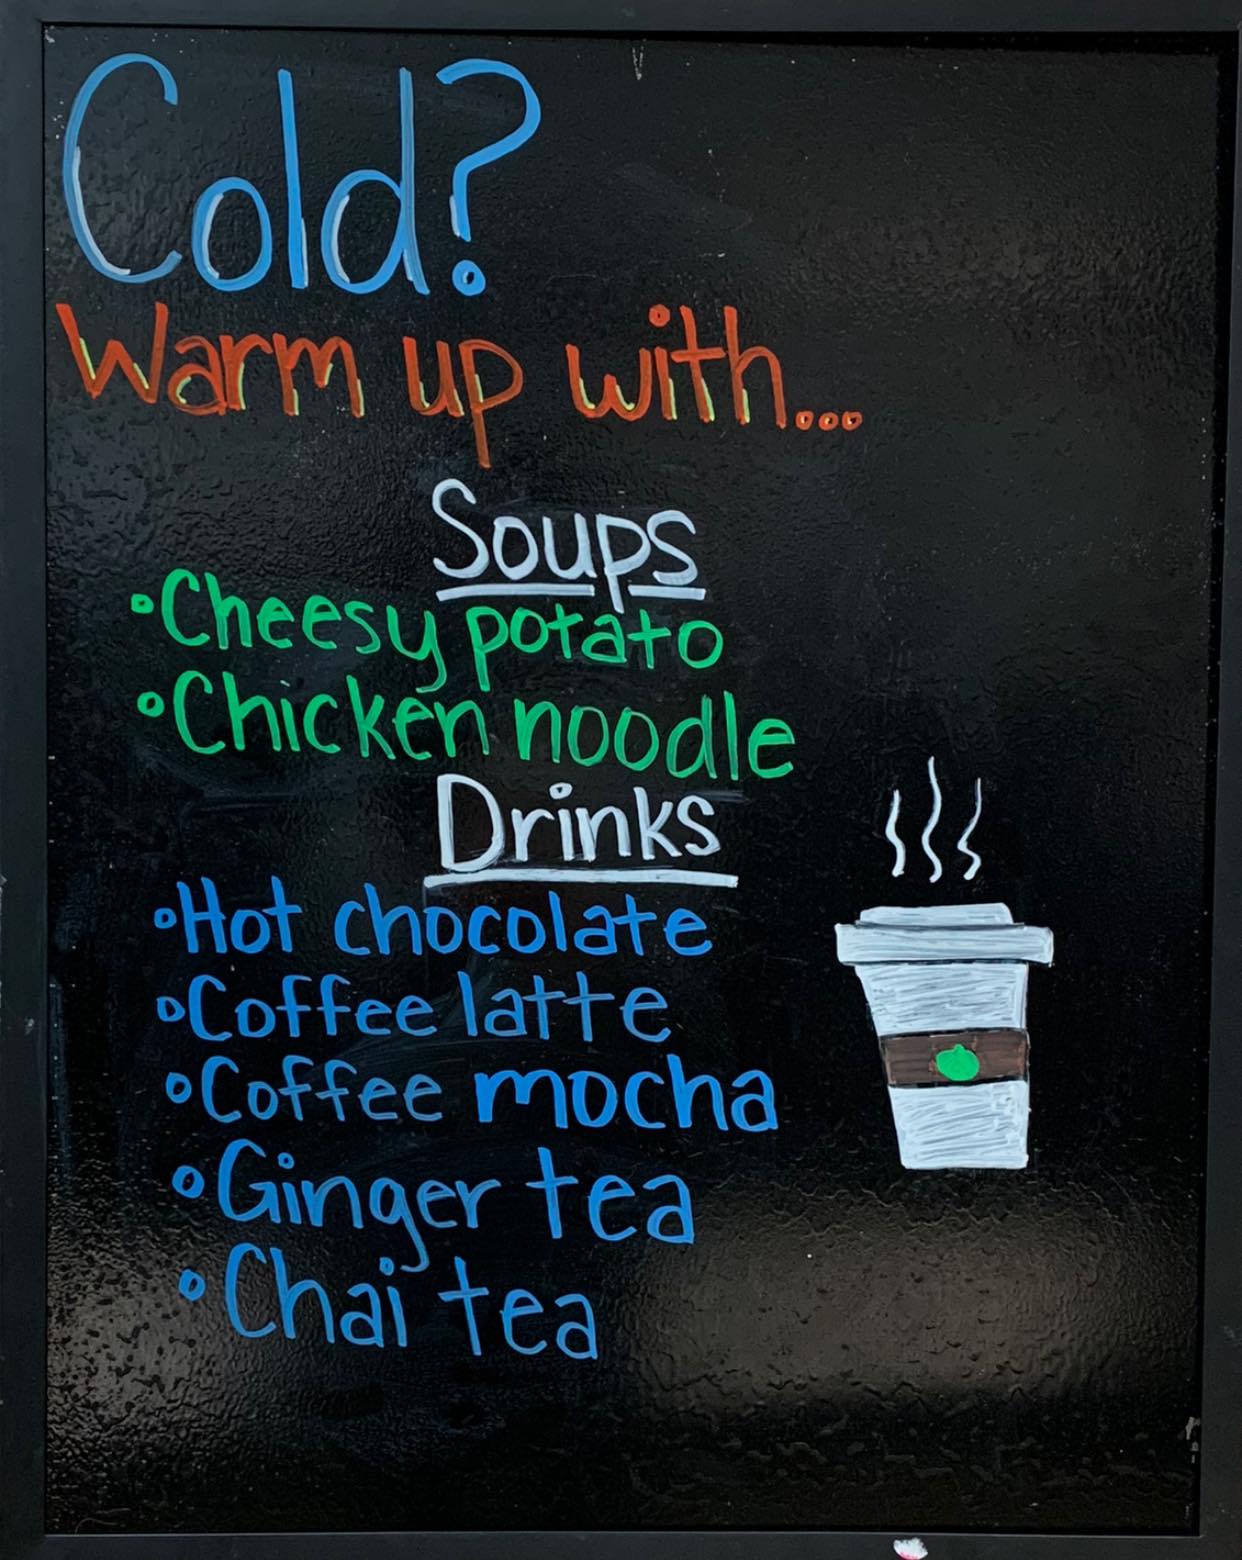 Cold?
Warm up with...
Soups
•Cheesy potato
•Chicken noodle
Drinks
•Hot chocolate
•Coffee latte
•Coffee mocha
•Ginger tea
•Chai tea